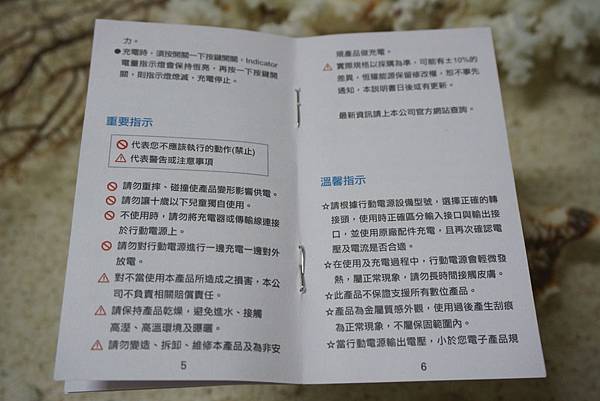 力。
●充電時，須按開關一下按鍵開關，Indicator
電量指示燈會保持恆亮，再按一下按鍵開
關，則指示燈熄滅，充電停止。
重要指示
代表您不應該執行的動作(禁止)
代表警告或注意事項
請勿重摔、碰撞使產品變形影響供電。
請勿讓十歲以下兒童獨自使用。
不使用時，請勿將充電器或傳輸線連接
於行動電源上。
請勿對行動電源進行一邊充電一邊對外
放電。
對不當使用本產品所造成之損害，本公
司不負責相關賠償責任。
請保持產品乾燥，避免進水、接觸
高溼、高溫環境及曝曬。
請勿變造、拆卸、維修本產品及為非安
5
規產品做充電。
實際規格以採購為準，可能有±10%的
差異，恆耀能源保留修改權，恕不事先
通知，本說明書日後或有更新。
最新資訊請上本公司官方網站查詢。
溫馨指示
☆請根據行動電源設備型號，選擇正確的轉
接頭，使用時正確區分輸入接口與輸出接
口，並使用原廠配件充電，且再次確認電
壓及電流是否合適。
☆在使用及充電過程中，行動電源會輕微發
熱，屬正常現象，請勿長時間接觸皮膚。
☆此產品不保證支援所有數位產品。
☆產品為金屬質感外觀，使用過後產生刮痕
為正常現象，不屬保固範圍內。
☆當行動電源輸出電壓，小於您電子產品規
6